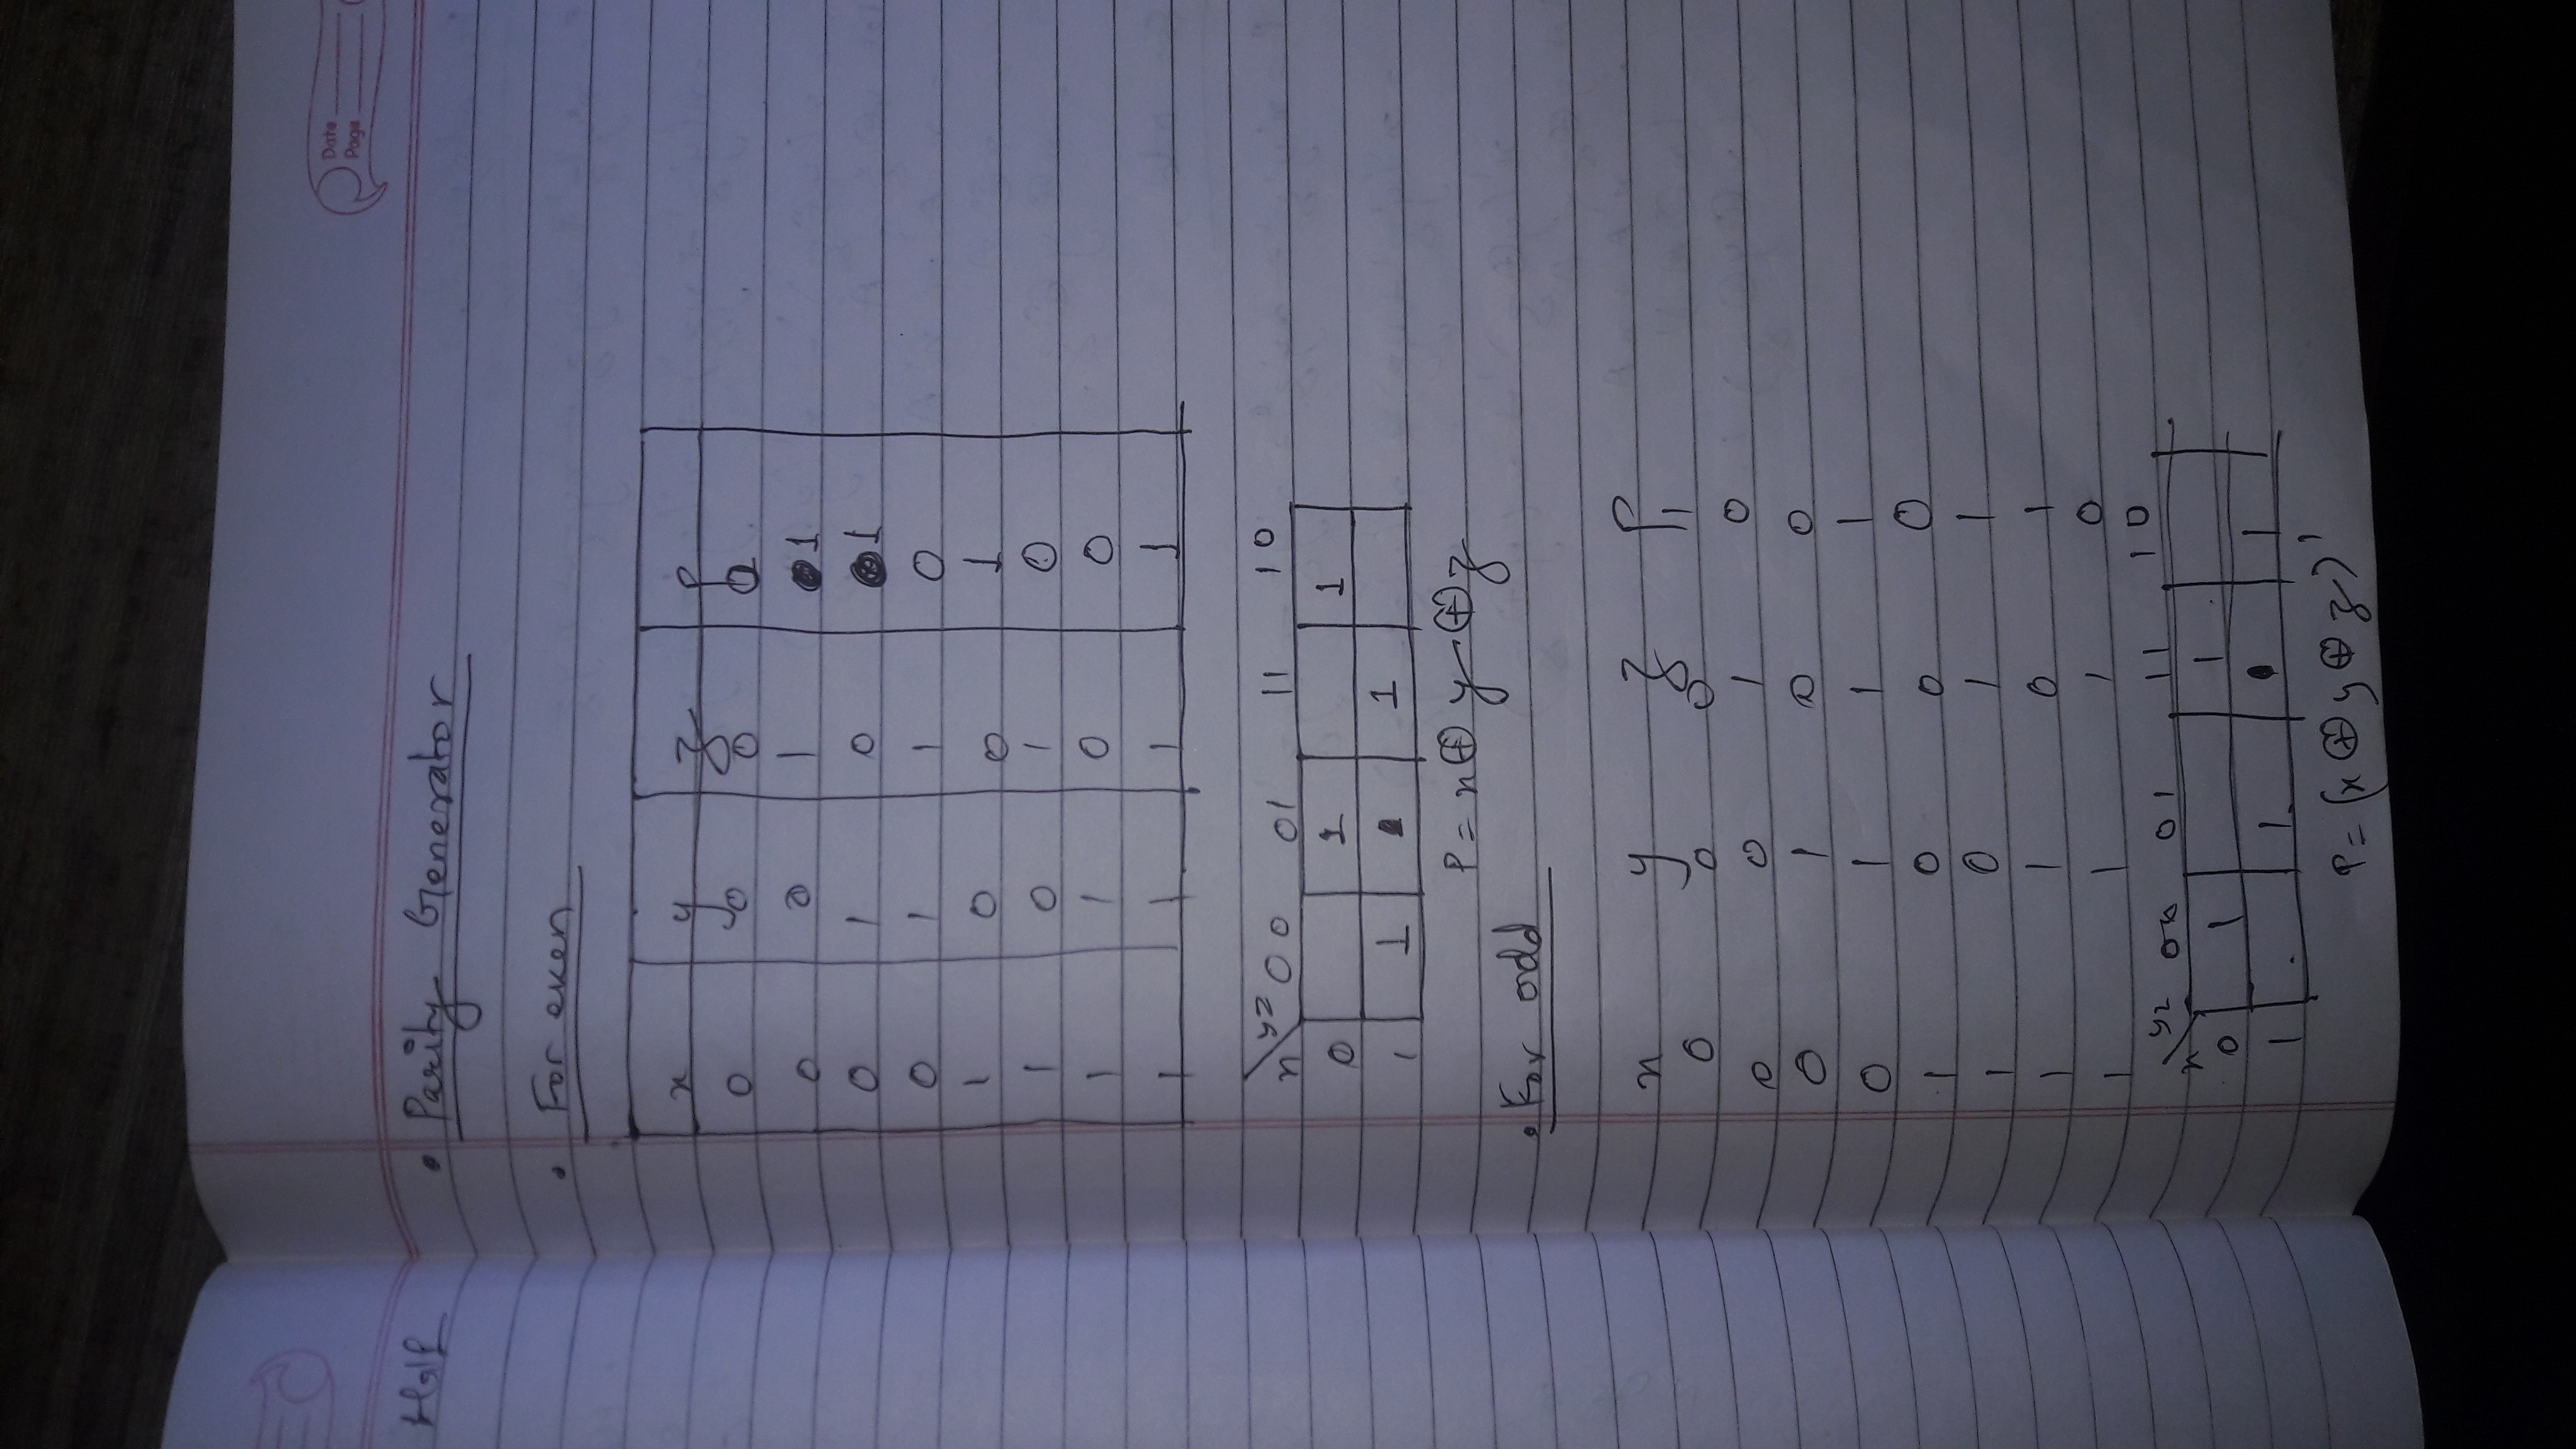 Date
Page
• Parity Generator
• For even
x y z P
0 0 0 0
0 0 1 1
0 1 0 1
0 1 1 0
1 0 0 1
1 0 1 0
1 1 0 0
1 1 1 1
x yz 00 01 11 10
0 1 1
1 1 1
P = x ⊕ y ⊕ z
• For odd
x y z P
0 0 0 1
0 0 1 0
0 1 0 0
0 1 1 1
1 0 0 0
1 0 1 1
1 1 0 1
1 1 1 0
x yz 00 01 11 10
0 1 1
1 1 1
P = (x ⊕ y ⊕ z)'
Half